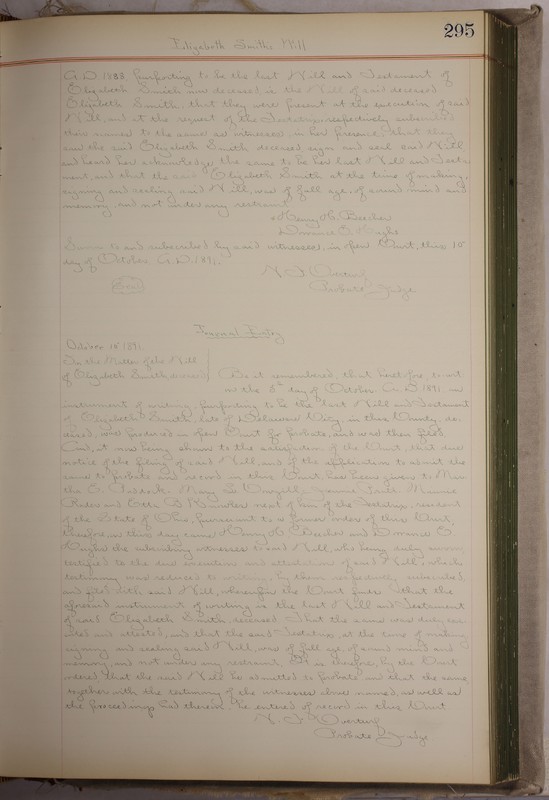 295
Elizabeth Smiths Will
A.D. 1888 purporting to be the last Will and Testament of
Elizabeth Smith now deceased, is the Will of said deceased
Elizabeth Smith, that they were present at the execution of said
Will, and at the request of the Testatrix, respectively subscribed
their names to the same as witnesses, in her presence, that they
saw the said Elizabeth Smith deceased, sign and seal said Will
and heard her acknowledge the same to be her last Will and Testa-
ment, and that the said Elizabeth Smith at the time of making,
signing and sealing said Will, was of full age, of sound mind and
memory, and not under any restraint.
Henry H. Beecher
E.
Sworn to and subscribed by said witnesses, in open Court, this 15"
day of October A.D. 1891.
Probate Judge
Seal
Journal Entry
October 15" 1891.
In the Matter of the Will
of Elizabeth Smith, deceased
Be it remembered, that heretofore, to wit
on the day of October A.D. 1891 an
instrument of writing, purporting to be the last Will and Testament
of Elizabeth Smith, late of Delaware City, in this County, de-
ceased, was produced in open Court for probate, and was then filed
And, it now being shown to the satisfaction of the Court, that due
notice of the filing of said Will, and of the application to admit the
same to probate and record in this Court has been given to
the E. Mary
and Etta B. next of kin of the Testatrix, resident
of the State of Ohio, pursuant to a former order of this Court,
therefore, on this day came Henry H. Beecher and E.
the subscribing witnesses to said Will, who being duly sworn,
testified to the due execution and attestation of said Will; which
testimony was reduced to writing, by them respectively subscribed,
and filed with said Will, whereupon the Court finds that the
aforesaid instrument of writing is the last Will and Testament
of said Elizabeth Smith, deceased. That the same was duly exe-
cuted and attested, and that the said Testatrix, at the time of making
signing and sealing said Will, was of full age, of sound mind and
memory, and not under any restraint. It is therefore, by the Court
ordered, that the said Will be admitted to probate and that the same,
together with the testimony of the witnesses above named, as well as
the proceedings had therein be entered of record in this Court
Probate Judge